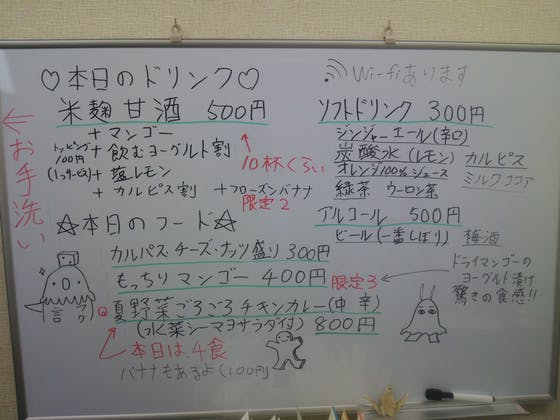 ♡本日のドリンク♡
米麹甘酒 500円
+マンゴー
トッピング100円
(1つサービス)
+飲むヨーグルト割
+塩レモン
+カルピス割
+フローズンバナナ
限定2
10杯くらい
←お手洗い
☆本日のフード☆
カルパス・チーズ・ナッツ盛り 300円
もっちりマンゴー 400円
限定3
夏野菜ごろごろチキンカレー(中辛)
(水菜シーマヨサラダ付) 800円
本日は4食
バナナもあるよ(100円)
Wi-fiあります
ソフトドリンク 300円
ジンジャーエール(辛口)
炭酸水(レモン) カルピス
オレンジ100%ジュース ミルクココア
緑茶 ウーロン茶
アルコール 500円
ビール(一番しぼり) 梅酒
ドライマンゴーの
ヨーグルト漬け
驚きの食感!!